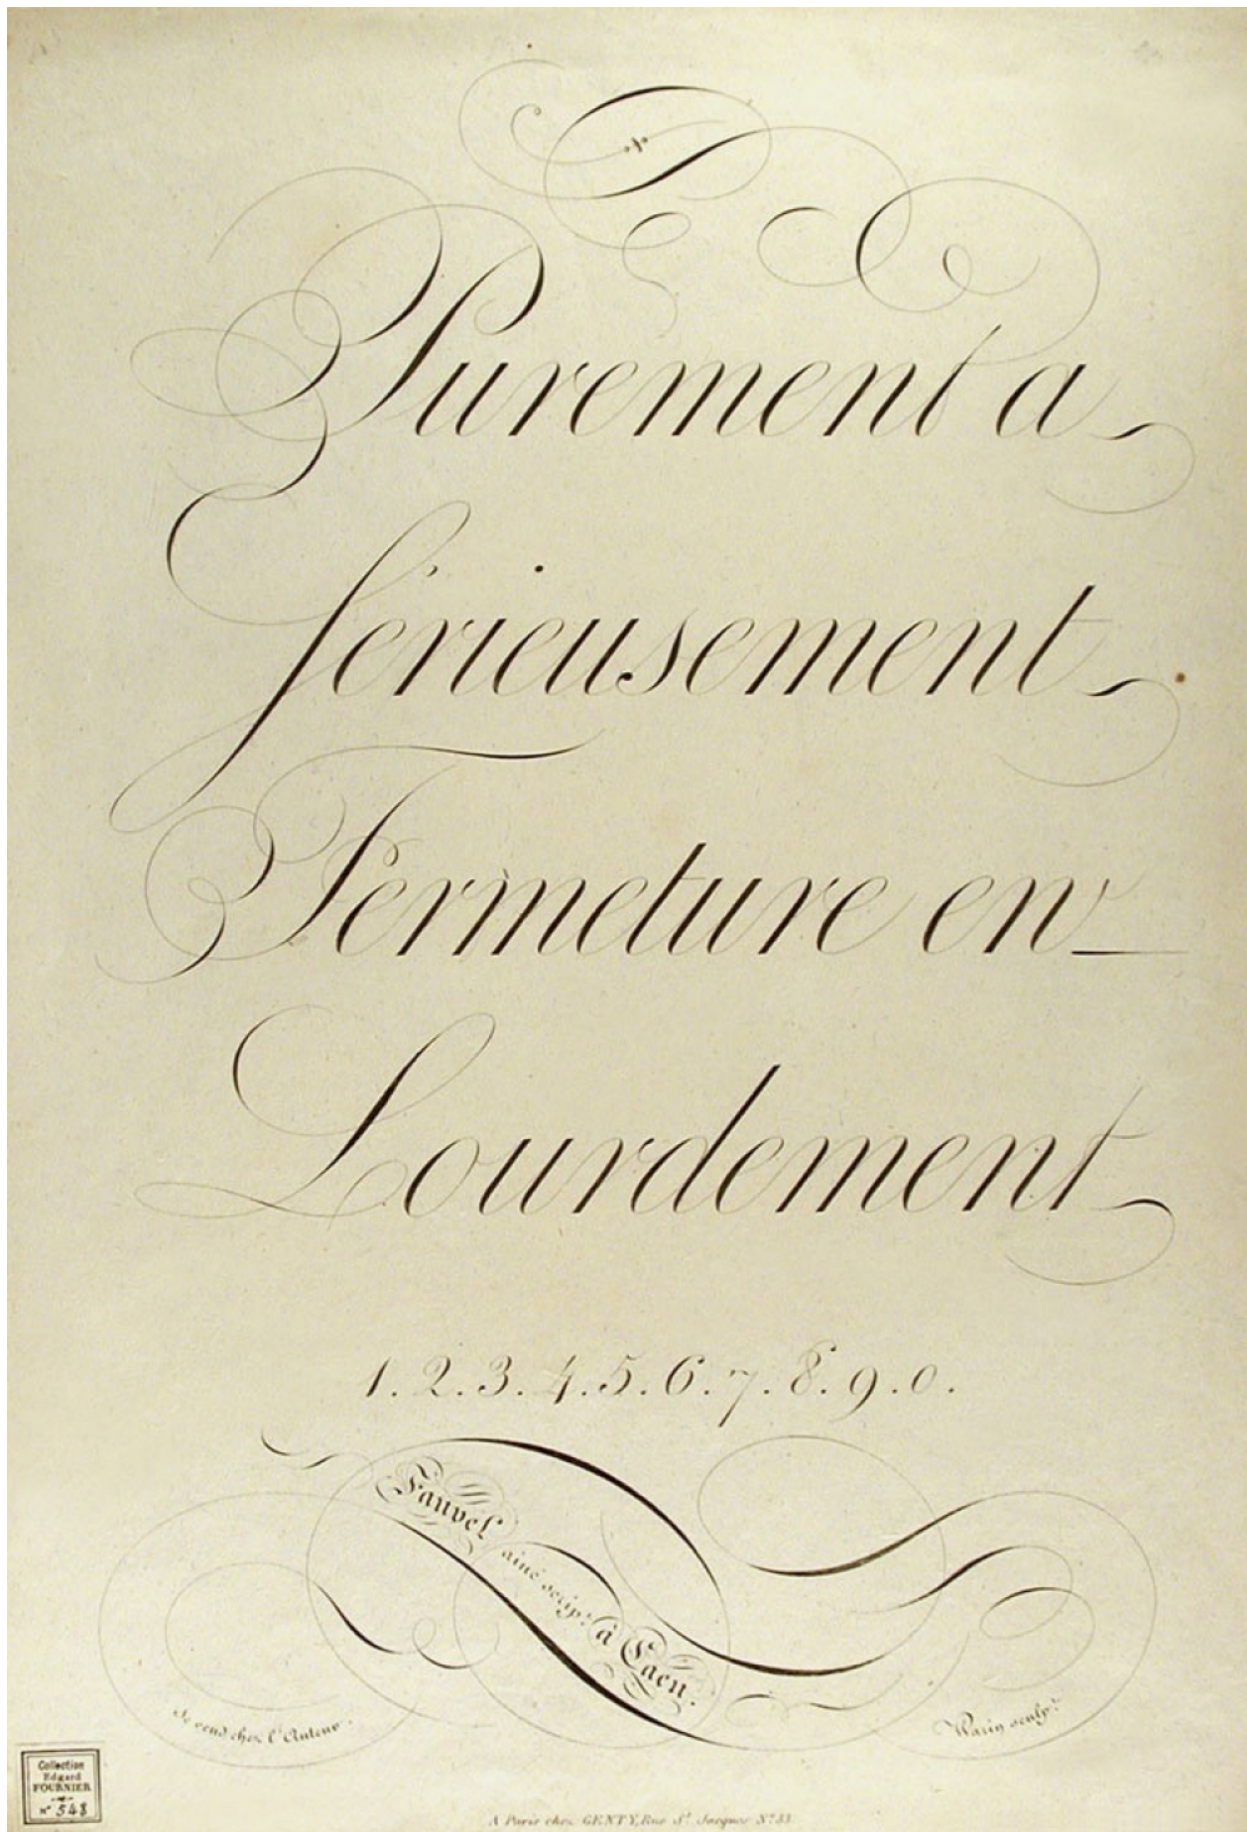 Purement a
sérieusement
Fermeture en
Lourdement
1. 2. 3. 4. 5. 6. 7. 8. 9. 0.
Fauvel
ainé scrip.t à Caen.
Se vend chez l'Auteur.
Warin sculp.t
Collection
Edgard
FOURNIER
N° 548
A Paris chez GENTY, Rue St. Jacques N° 33